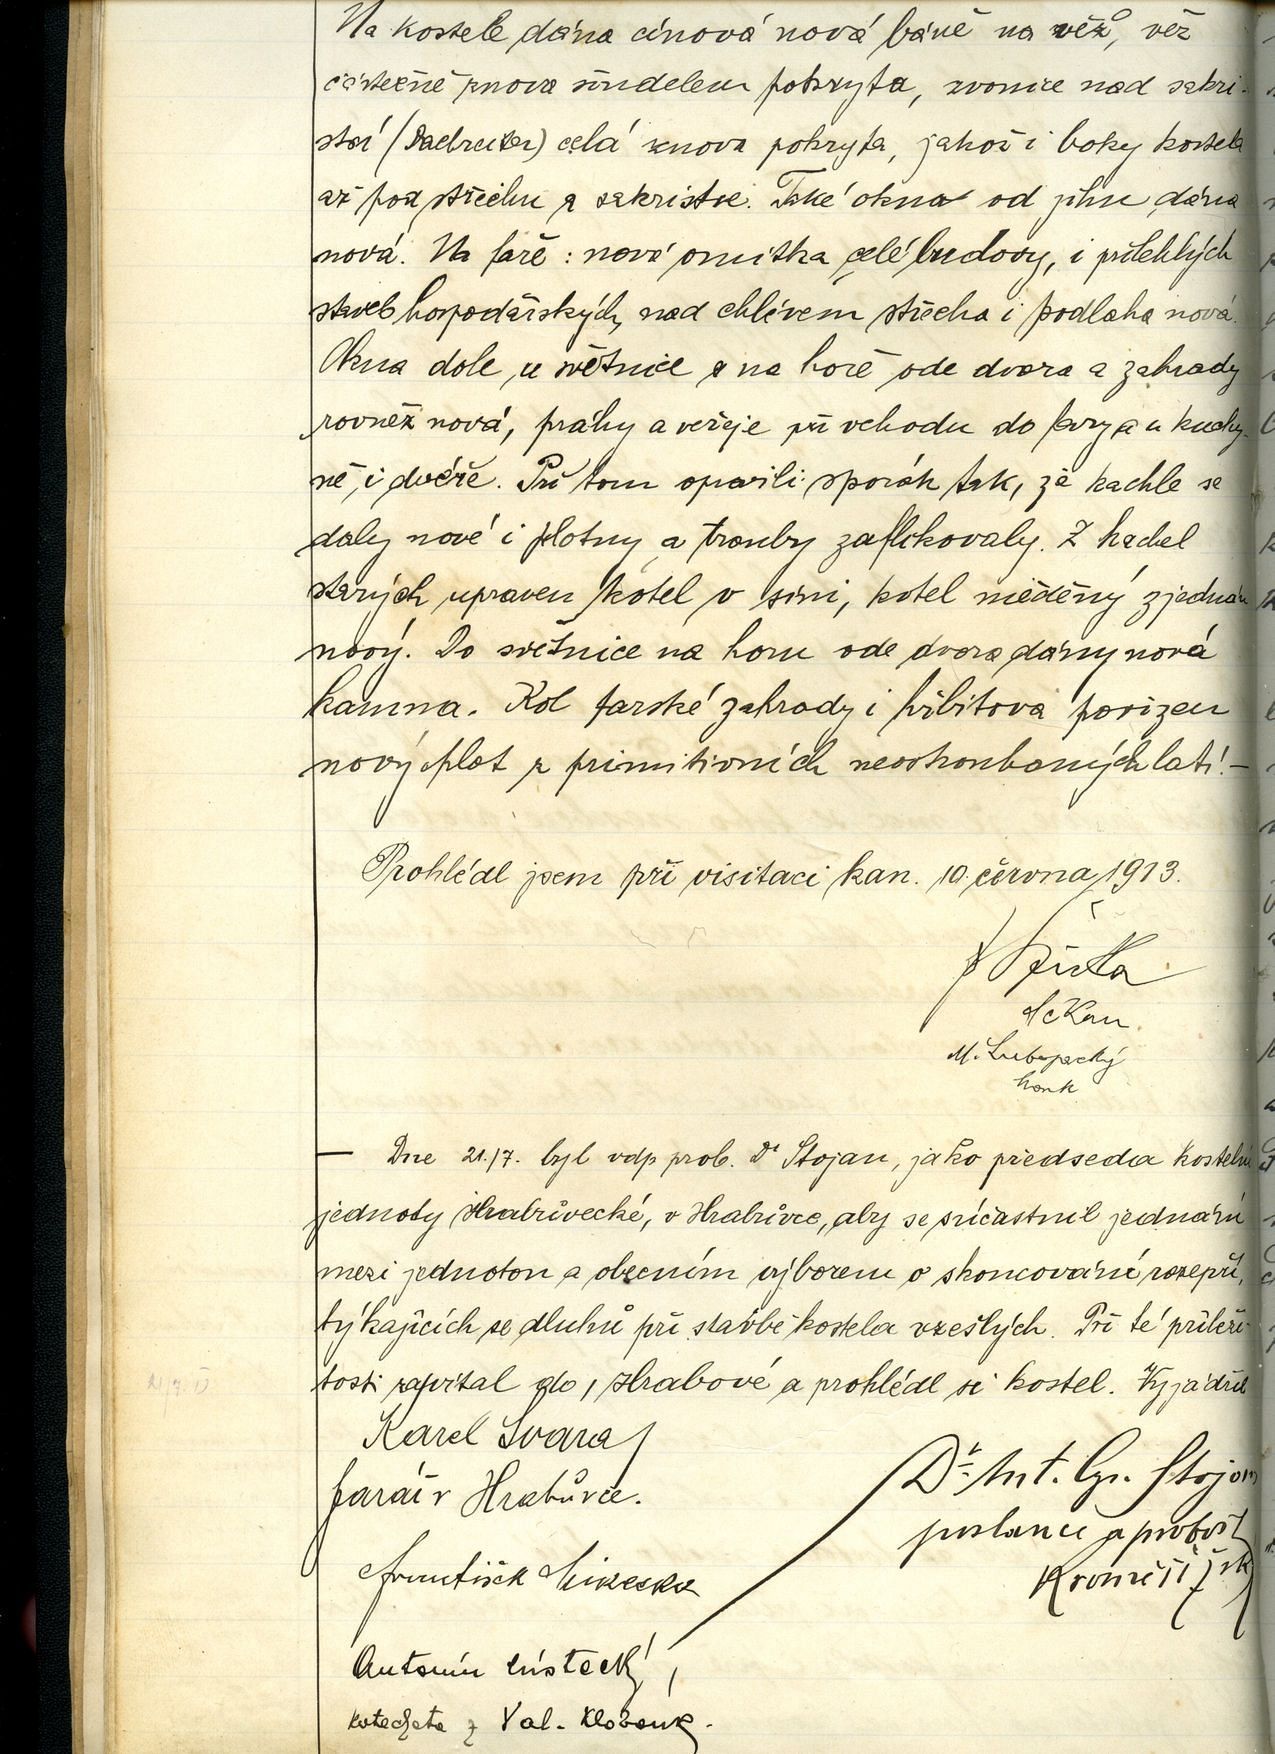 Na kostele dána cínová nová báně na věž, věž
částečně znova šindelem pokryta, zvonice nad sakri-
stií (Dachreiter) celá znova pokryta, jakož i boky kostela
až pod střechu a sakristie. Také okna od jihu dána
nová. Na faře: nová omítka celé budovy, i přilehlých
staveb hospodářských, nad chlévem střecha i podlaha nová.
Okna dole u světnice a na hoře ode dvora a zahrady
rovněž nová, prahy a veřeje při vchodu do fary a u kuchy-
ně, i dvéře. Při tom opravili sporák tak, že kachle se
daly nové i plotny a trouby zaflikovaly. Z kachel
starých upraven kotel v síni, kotel měděný zjednán
nový. Do světnice na horu ode dvora dány nová
kamna. Kol farské zahrady i hřbitova pořízen
nový plot z primitivních neoškoubaných latí! –
Prohlédl jsem při visitaci kan. 10. června 1913.
děkan
– Dne 21./7. byl vdp. prob. Dr Stojan, jako předseda kostelní
jednoty Hrabůvecké, v Hrabůvce, aby se súčastnil jednání
mezi jednotou a obecním výborem o skoncování rozepří,
týkajících se dluhů při stavbě kostela vzešlých. Při té příleži-
tosti zavítal do Hrabové a prohlédl si kostel. Vyjádřil
21/7. 13
Karel Švara
farář v Hrabůvce.
Dr. Ant. Cyr. Stojan
poslanec a probošt
Kroměříž
František Mikeska
Antonín
katecheta z Val. Klobouk.